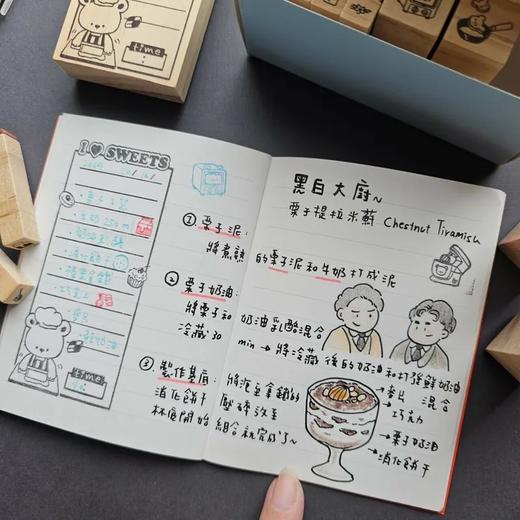 time :
I ♥ SWEETS
牛奶 250 ml
巧克力
time :
① 栗子泥:
將煮熟
② 栗子奶油:
將栗子和
冷藏 30
③ 製作基底:
消化餅干
杯底開始
黑白大廚~
栗子提拉米蘇 Chestnut Tiramisu
的栗子泥和牛奶打成泥
奶油乳酪混合
min → 將冷藏後的奶油和打發鮮奶油
混合
→ 麥片
→ 巧克力
→ 栗子奶油
→ 消化餅干
壓碎放至
組合就完成了~